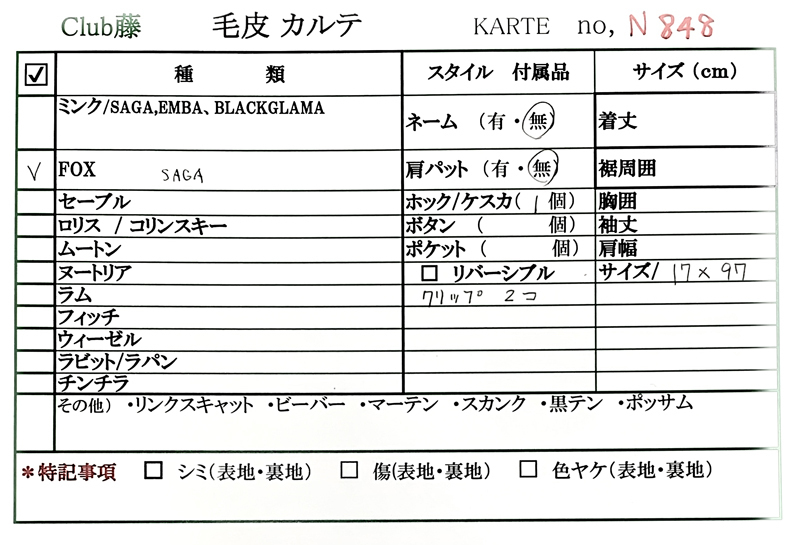 Club藤 毛皮 カルテ KARTE no, N 848
☑ 種 類 スタイル 付属品 サイズ（cm）
ミンク/SAGA,EMBA、BLACKGLAMA ネーム （有・無） 着丈
✓ FOX SAGA 肩パット（有・無） 裾周囲
セーブル ホック/ケスカ（ 1 個） 胸囲
ロリス / コリンスキー ボタン （ 個） 袖丈
ムートン ポケット （ 個） 肩幅
ヌートリア □ リバーシブル サイズ/ 17×97
ラム クリップ 2コ
フィッチ
ウィーゼル
ラビット/ラパン
チンチラ
その他） ・リンクスキャット ・ビーバー ・マーテン ・スカンク ・黒テン ・ポッサム
*特記事項 □ シミ（表地・裏地） □ 傷（表地・裏地） □ 色ヤケ（表地・裏地）